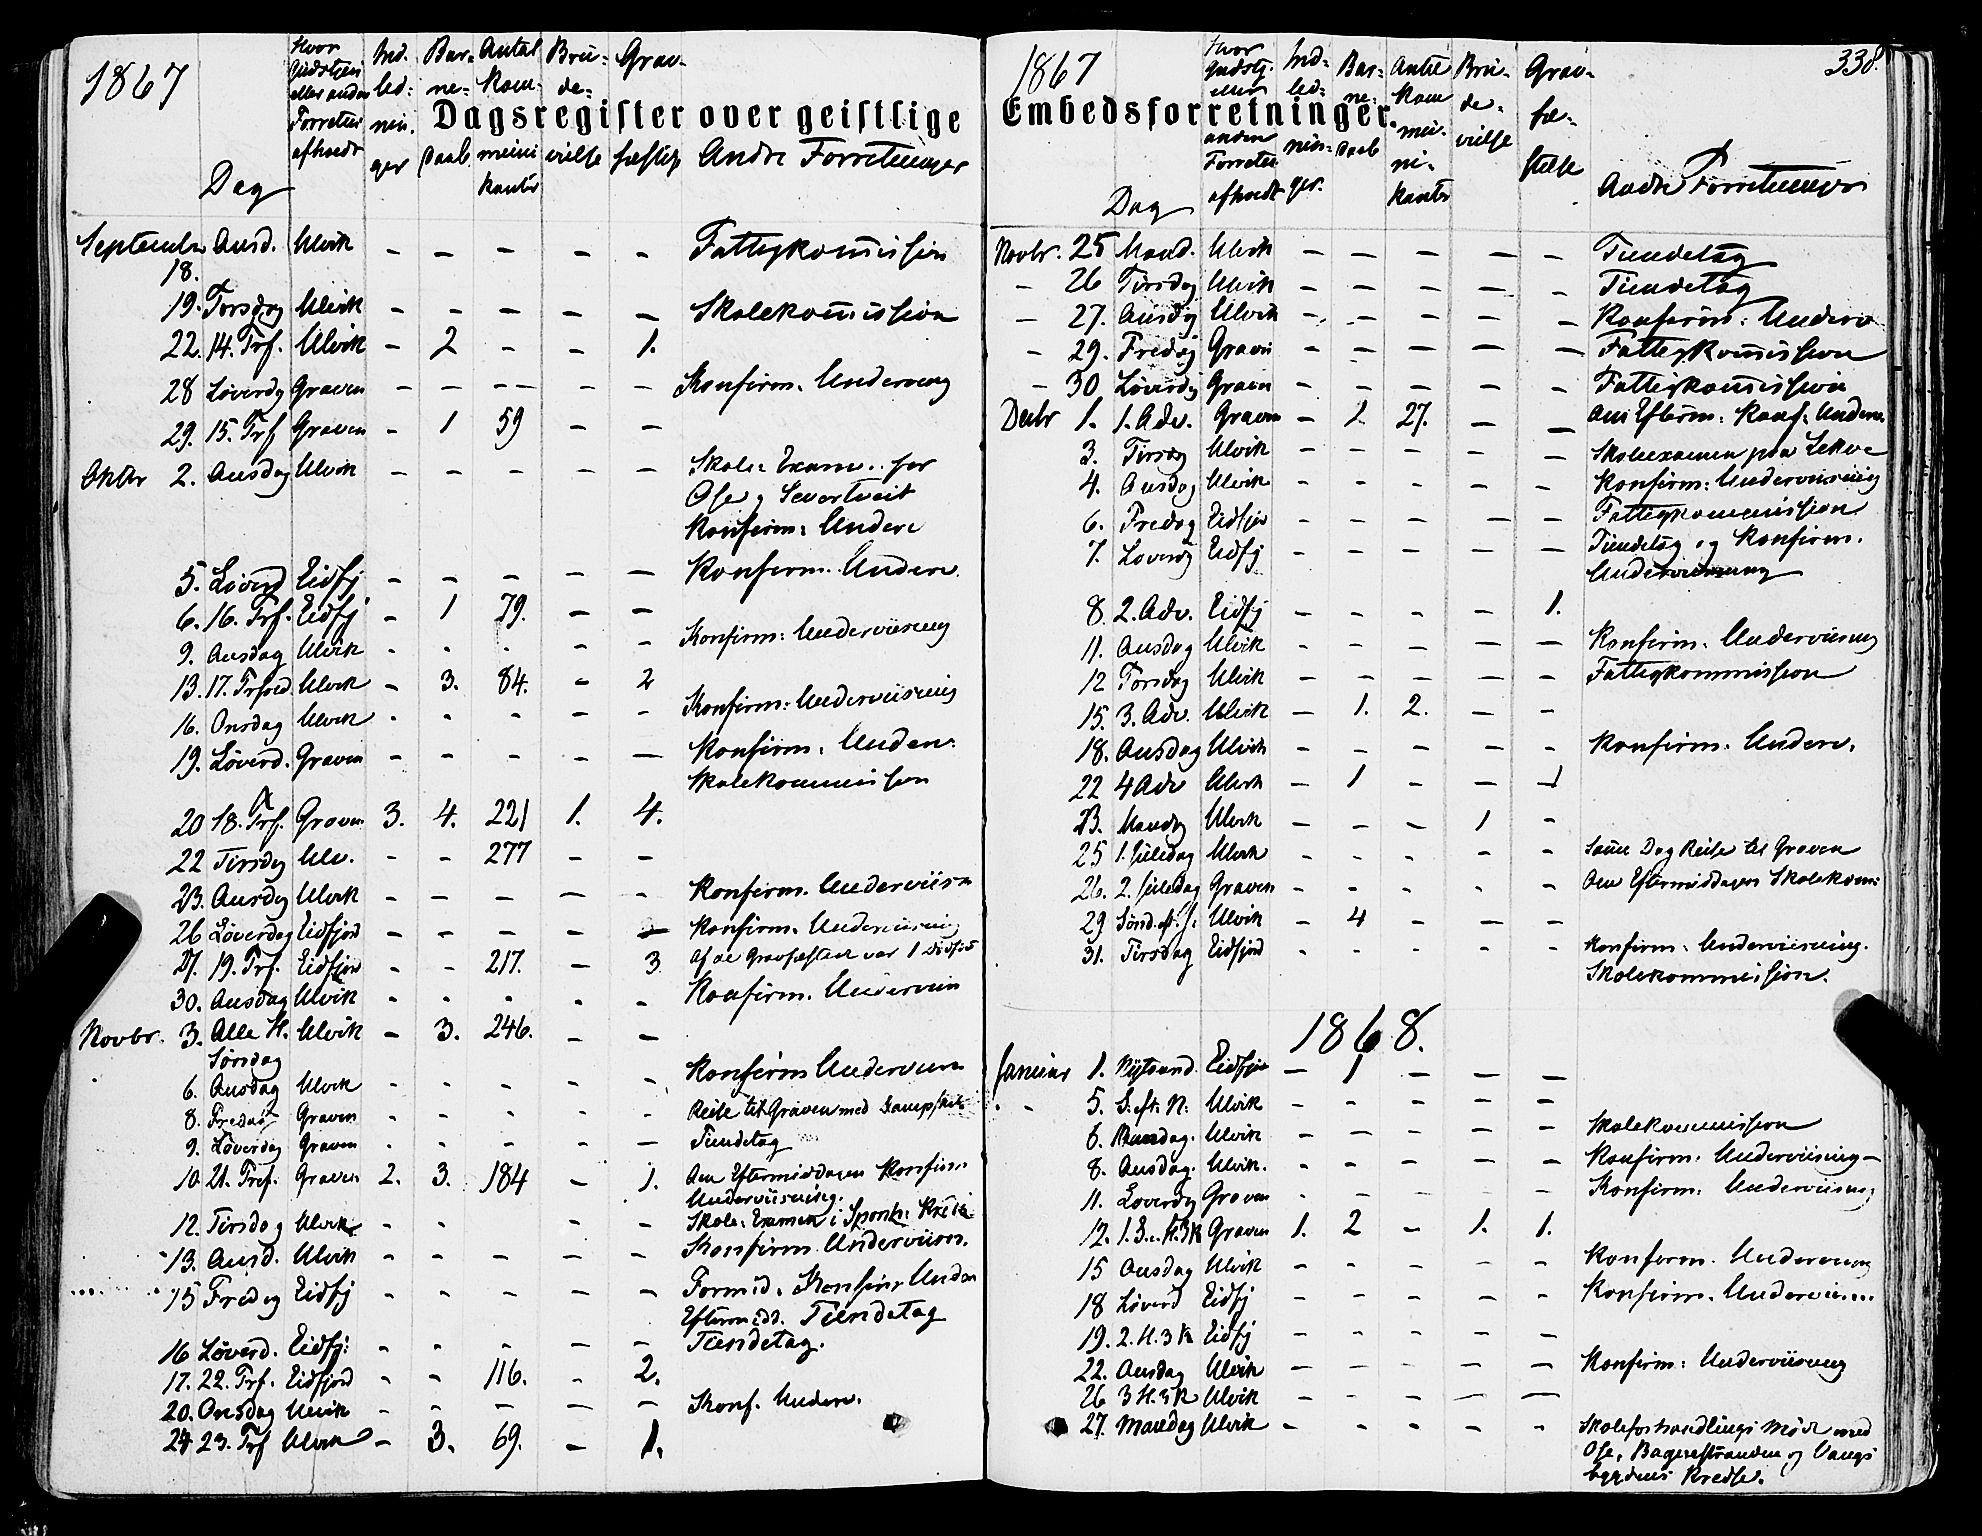 1867
Dagsregister over geistlige
Dag
Hvor Gudstjen eller anden Forretn afholdt
Ind-led-nin-ger
Bar-ne-daab
Antal Kom-muni kanter
Bru-de-vielse
Grav-fæstelse
Andre Forretninger
September 18. Onsd. Ulvik - - - - - Fattigkommission
19. Torsdag Ulvik - - - - - Skolekommission
22. 14. Trf. Ulvik - 2 - - 1.
28 Løverdg Graven - - - - - Konfirm. Underv
29. 15. Trf Graven - 1 59 - -
Oktbr 2. Onsdag Ulvik - - - - - Skole: Exam. for
Ose og Sevartveit
Konfirm: Underv
5. Løverd Eidfj - - - - - Konfirm. Underv.
6. 16. Trf. Eidfj - 1 79. - -
9. Onsdag Ulvik - - - - - Konfirm: Underviisning
13. 17. Trf Ulvik - 3. 84. - 2
16. Onsdag Ulvik - - - - - Konfirm: Underviisning
19. Løverd. Graven - - - - - Konfirm. Underv.
Skolekommission
20 18. Trf. Graven 3. 4. 221 1. 4.
22 Tirsdag Ulv. - - 277 - -
23. Onsdag Ulvik - - - - - Konfirm. Underviisn
26 Løverdag Eidfjord - - - - - Konfirm. Underviisning
27. 19. Trf. Eidfjord - - 217. - 3 Af de Gravfæstede var 1 dødfød
30. Onsdag Ulvik - - - - - Konfirm. Underviisn
Novbr. 3. Alle H. Ulvik - 3. 246. - -
Søndag
6. Onsdag Ulvik - - - - - Konfirm Underviisn
8. Fredag Graven - - - - - Reise til Graven med Dampskib
9. Løverdag Graven - - - - - Tiendetag
10. 21. Tref. Graven 2. 3. 184 - 1. Om Eftermiddagen Konfirm
Underviisning.
12. Tirsdag Ulvik - - - - - Skole: Examen i Kreds
13. Onsd. Ulvik - - - - - Konfirm Underviisn.
15 Fredag Eidfj - - - - - Formid. Konfirm Underv
Eftermidd. Tiendetag
16 Løverd. Eidfj: - - - - - Tiendetag.
17. 22. Trf. Eidfjord - - 116. - 2.
20. Onsdag Ulvik - - - - - Konf. Underv.
24 23. Trf Ulvik - 3. 69. - 1.
338.
1867
Embedsforretninger.
Dag
Hvor Gudstj. eller anden Forretn afholdt
Ind-led-nin-ger.
Bar-ne-daab
Antal Kom-mu-ni-kanter
Bru-de-vielse
Grav-fæ-stelse
Andre Forretninger
Novbr. 25 Mand. Ulvik - - - - - Tiendetag
- 26 Tirsdag Ulvik - - - - - Tiendetag
- 27. Onsdg Ulvik - - - - - Konfirm: Underv
- 29. Fredag Graven - - - - - Fattigkommission
- 30 Løverdg Graven - - - - - Fattigkommission
Decbr 1. 1. Adv. Graven - 2. 27. - - Om Efterm: Konf: Underv.
3. Tirsdg Ulvik - - - - - Skoleexamen paa Lekve
4. Onsdag Ulvik - - - - - Konfirm: Underviisning
6. Fredag Eidfjor - - - - - Fattigkommission
7. Løverdg Eidfj - - - - - Tiendetag og Konfirm.
Underviisning
8 2. Adv. Eidfj - - - - 1.
11. Onsdag Ulvik - - - - - Konfirm. Underviisning
12 Torsdag Ulvik - - - - - Fattigkommission
15. 3. Adv. Ulvik - 1. 2. - -
18. Onsdag Ulvik - - - - - Konfirm. Underv.
22 4 Adv Ulvik - 1 - - 1
23. Mandag Ulvik - - - 1 -
25 1. Juledag Ulvik - - - - - Samme Dag Reise til Graven
26. 2. Juledag Graven - - - - - Om Eftermiddagen Skolekom:
29 Sønd. eft. J. Ulvik - 4 - - -
31. Tirsdag Eidfjord - - - - - Konfirm. Underviisning.
Skolekommission.
1868.
Januar 1. Nytaarsd. Eidfjor - 1 - - -
5. S. eft. N. Ulvik - - - - -
6. Mandag. Ulvik - - - - - Skolekommission
8. Onsdag. Ulvik. - - - - - Konfirm. Underviisning -
11. Løverdg Graven - - - - - Konfirm. Underviisning
12. 1. S. e. H. 3 K Graven 1. 2 - 1. 1.
15 Onsdag Ulvik - - - - - Konfirm. Underviisning
18 Løverd Eidfj - - - - - Konfirm. Underviisn...
19. 2. H. 3 K Eidfj - - - - -
22. Onsdag Ulvik - - - - - Konfirm: Underviisning
26 3 H. 3 K Ulvik - - - - -
27. Mandag Ulvik - - - - - Skoleforhandlings Møde med
Ose, Bagnerstranden og Vangs
bygdens Kredse.